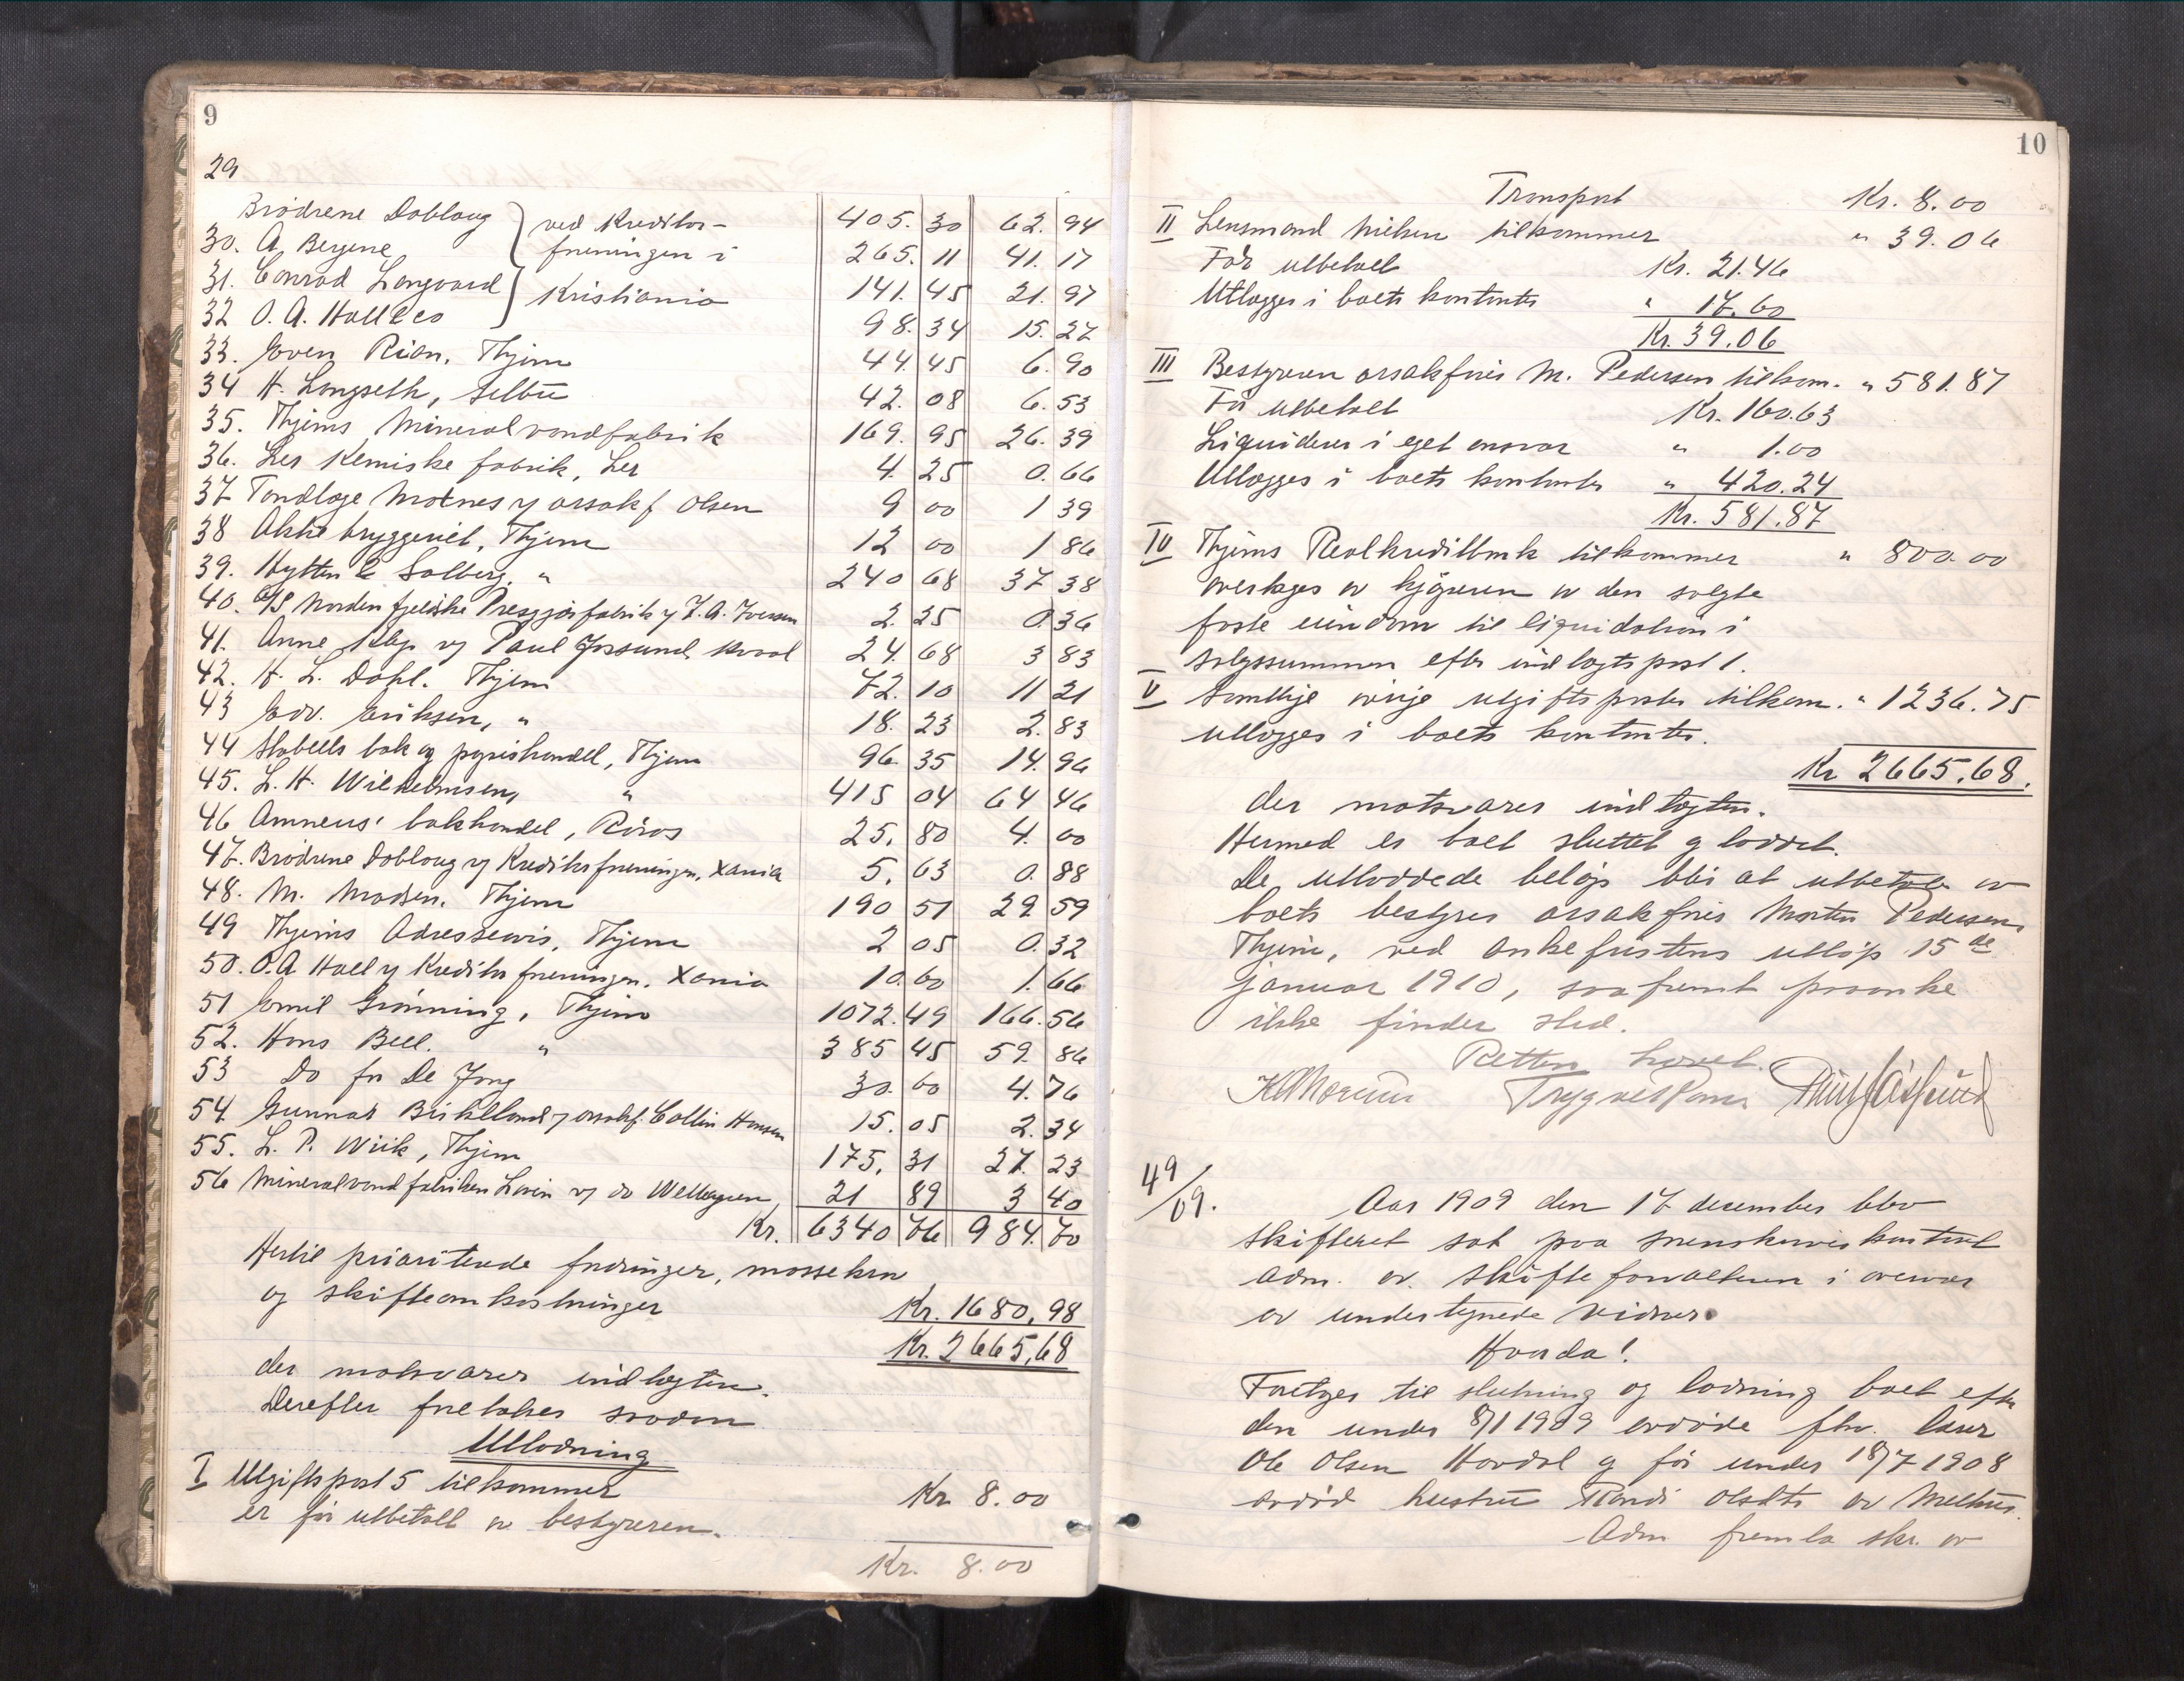 9
29
Brødrene Dobloug } ved Kreditor- 405.30 62.94
30. A. Bergene foreningen i 265.11 41.17
31. Conrad Langaard Kristiania 141.45 21.97
32 O. A. Hall & Co 98.34 15.27
33. Even Rian, Thjem 44.45 6.90
34 H. Langseth, Selbu 42.08 6.53
35. Thjems Mineralvandfabrik 169.95 26.39
36. Ler Kemiske fabrik, Ler 4.25 0.66
37 Tandlæge Motnes v/ orsakf Olsen 9 00 1 39
38 Aktie bryggeriet, Thjem 12 00 1 86
39. Hytten & Solberg, " 240 68 37 38
40. A/S Nordenfjeldske Presgjærfabrik v/ J. A. Iversen 2.25 0.36
41. Anne v/ Paul Jøssund Kvaal 24.68 3 83
42. H. L. Dahl. Thjem 72.10 11 21
43 Edv. Eriksen, " 18.23 2.83
44 Stabells bok og papirhandel, Thjem 96.35 14.96
45. L. H. Wilhelmsen, " 415 04 64 46
46 Amneus' bokhandel, Røros 25.80 4.00
47. Brødrene Dobloug v/ Kreditorforeningen, Xania 5.63 0.88
48. M. Madsen. Thjem 190 51 29 59
49 Thjems Adresseavis, Thjem 2 05 0.32
50. O. A Hall v/ Kreditorforeningen, Xania 10.60 1.66
51 Emil Grønning, Thjem 1072.49 166.56
52. Hans Bell. " 385 45 59.86
53 Do for De Jong 30.60 4.76
54. Gunnar Birkeland v/ orsakf. Collin Hansen 15.05 2.34
55. L. P. Wiik, Thjem 175.31 27.23
56 Mineralvandfabriken Lovin v/ do Wellagren 21 89 3 40
Kr. 6340 76 984.70
Hertil prioriterede fordringer, massekrav
og skifteomkostninger Kr. 1680.98
Kr. 2665,68
der motsvarer indtægten.
Derefter foretokes saadan
Utlodning
I Utgiftspost 5 tilkommer Kr 8.00
er før utbetalt av bestyreren.
Kr. 8.00
10
Transport Kr. 8.00
II Lensmand Nielsen tilkommer " 39.06
Før utbetalt Kr. 21.46
Utlægges i boets kontanter " 17.60
Kr. 39.06
III Bestyreren orsakfører M. Pedersen tilkom. " 581.87
Før utbetalt Kr. 160.63
Likviderer i eget ansvar " 1.00
Utlægges i boets kontanter " 420.24
Kr. 581.87
IV Thjems Realkreditbank tilkommer " 800.00
overtages av kjøperen av den solgte
faste eiendom til liquidation i
salgssummen efter indtægtspost 1.
V Samtlige øvrige utgiftsposter tilkom. " 1236.75
utlægges i boets kontanter.
Kr 2665.68.
der motsvarer indtægten.
Hermed er boet sluttet og loddet.
De utloddede beløp blir at utbetale av
boets bestyrer orsakfører Morten Pedersen,
Thjem, ved ankefristens utløp 15de
januar 1910, saafremt paaanke
ikke finder sted.
Retten hævet.
49/09.
Aar 1909 den 17 desember blev
skifteret sat paa sorenskriverkontoret
adm. av skifteforvalteren i overvær
av undertegnede vidner.
Hvorda!
Foretages til slutning og lodning boet efter
den under 8/1 1909 avdøde fhv.
Ole Olsen Hovdal og før under 18/7 1908
avdød hustru Randi Olsdtr av Melhus.
Adm fremla skr. av